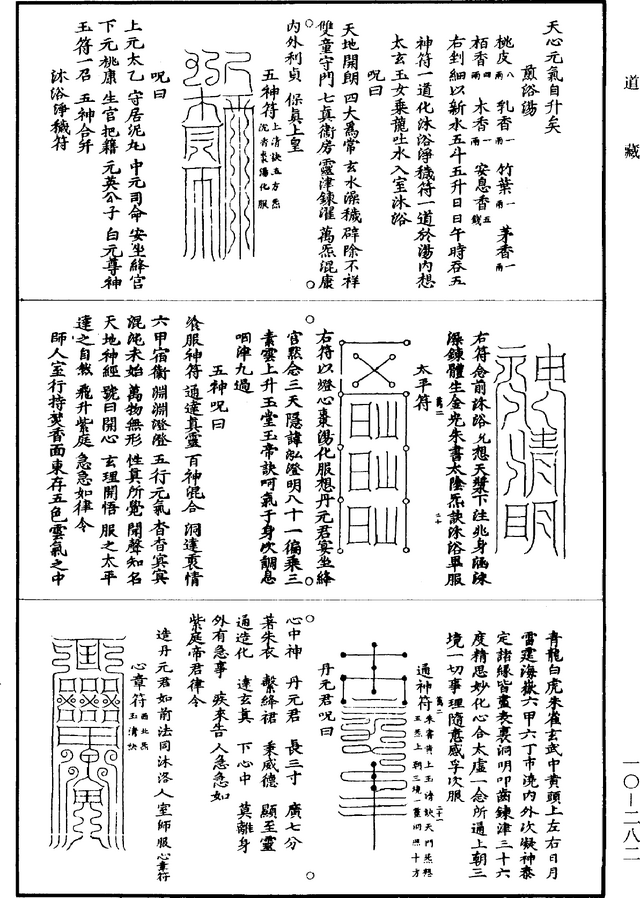 道藏
天心元氣自升矣
煎浴湯
桃皮八兩 乳香一兩 竹葉一兩 茅香一兩
栢香四兩 木香一兩 安息香五錢
右剉細以新水五斗五升日日午時吞五
神符一道化沐浴淨穢符一道於湯內想
太玄玉女乘龍吐水入室沐浴
呪曰
天地開朗 四大為常 玄水澡穢 辟除不祥
雙童守門 七真衞房 靈津鍊濯 萬炁混康
內外利貞 保真上皇
五神符
呪曰
上元太乙 守居泥丸 中元司命 安坐絳宮
下元桃康 生官把籍 元英公子 白元尊神
玉符一召 五神合幷
沐浴淨穢符
右符念前沐浴呪想天醫下注兆身滌
澡鍊體生金光朱書太陰炁訣沐浴畢服
太平符
右符以燈心棗湯化服想丹元君安坐絳
宮默念三天隱諱泓澄明八十一徧乘三
素雲上升玉堂玉帝訣呵氣于身次調息
咽津九過
五神呪曰
飱服神符 通達真靈 百神混合 洞達衷情
六甲宿衞 淵淵澄澄 五行元氣 杳杳冥冥
混沌未始 萬物無形 性真所覺 聞聲知名
天地神經 號曰開心 玄理開悟 服之太平
達之自然 飛升紫庭 急急如律令
師人室行持焚香面東存五色雲氣之中
青龍白虎朱雀玄武中黃頭上左右日月
雷霆海嶽六甲六丁市遶內外次凝神泰
定諸緣皆盡表裏洞明叩齒鍊津三十六
度精思妙化心合太虛一念所通上朝三
境一切事理隨意感孚次服
通神符
丹元君呪曰
心中神 丹元君 長三寸 廣七分
著朱衣 繫絳裙 秉威德 顯至靈
通造化 達玄真 下心中 莫離身
外有急事 疾來告人急急如
紫庭帝君律令
造丹元君如前法同沐浴人室師服心章符
心章符
一〇—二八二